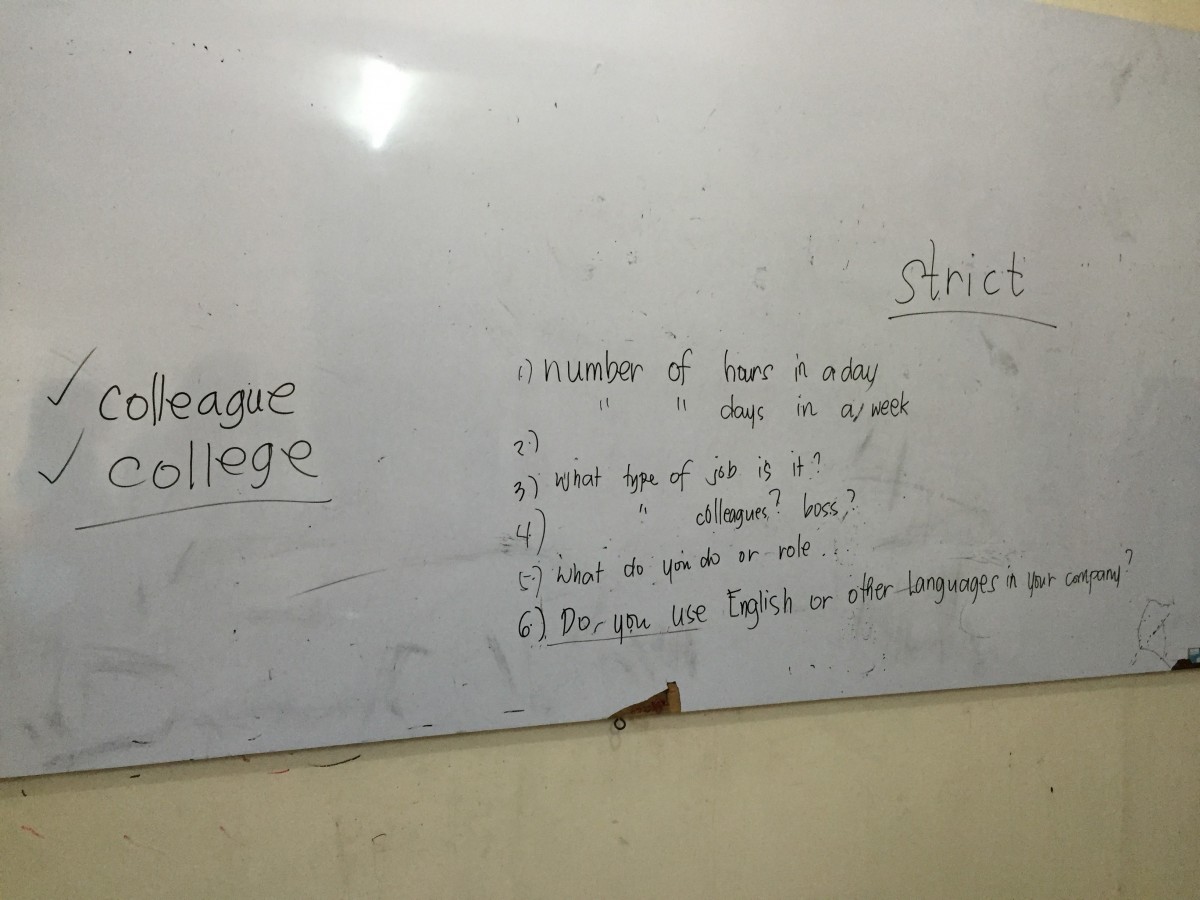 strict
✓ colleague
✓ college
1.) number of hours in a day
" " days in a week
2.)
3) What type of job is it?
4) " colleagues? boss?
5.) What do you do or role...
6.) Do you use English or other Languages in your company?